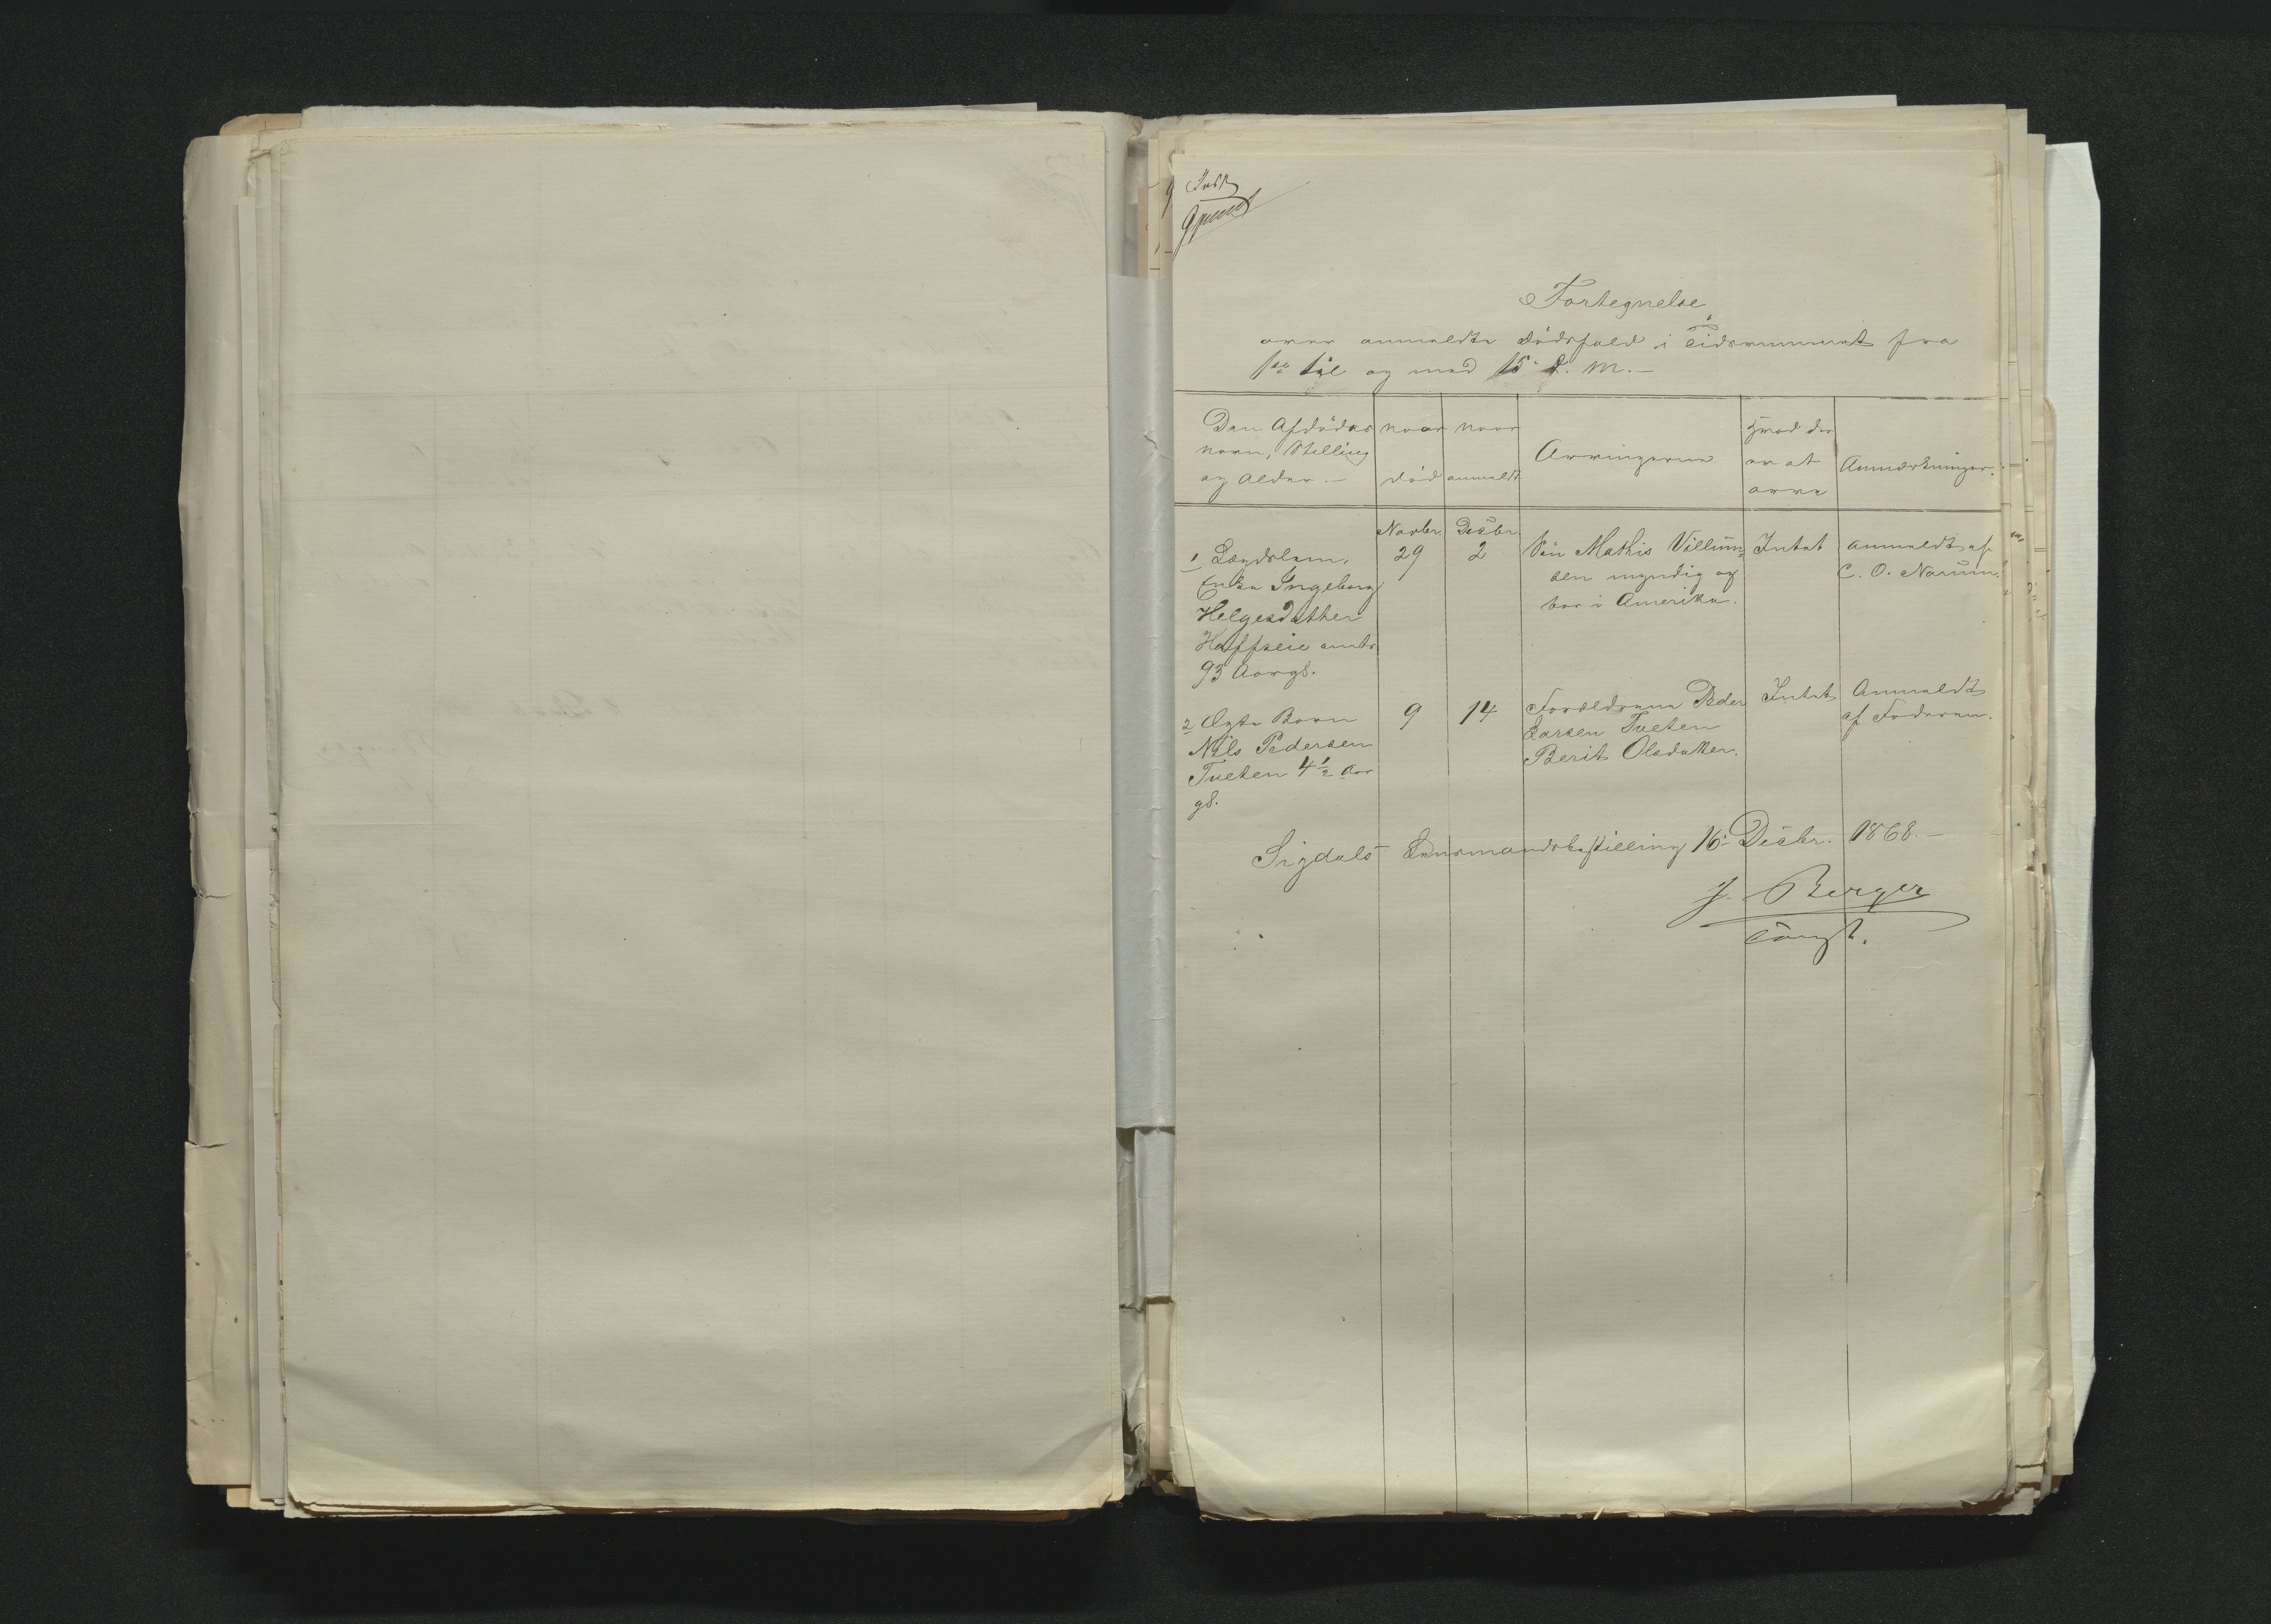 Fortegnelse
over anmeldte Dödsfald i Tidsrummet fra
1ste til og med 15de d. M. —
Den Afdödes
Navn, Stilling
og Alder. —
naar
död
naar
anmeldt
Arvingerne
Hvad der
er at
arve
Anmærkninger.
Novbr
29
Decbr
2
1 Lægdslem,
Enke Ingeborg
Helgesdatter
Hoffseie omtr
93 Aargl.
Sön Mathis Villum-
sen myndig og
bor i Amerika.
Intet
Anmeldt af
C. O. Narum.
2 Ægte Barn
Nils Pedersen
Tveten 4 1/2 Aar
gl.
9
14
Forældrene Peder
Larsen Tveten
Berit Olsdatter.
Intet
Anmeldt
af Faderen.
Sigdals Lensmandsbestilling 16de Decbr. 1868. —
J. Berger
const.